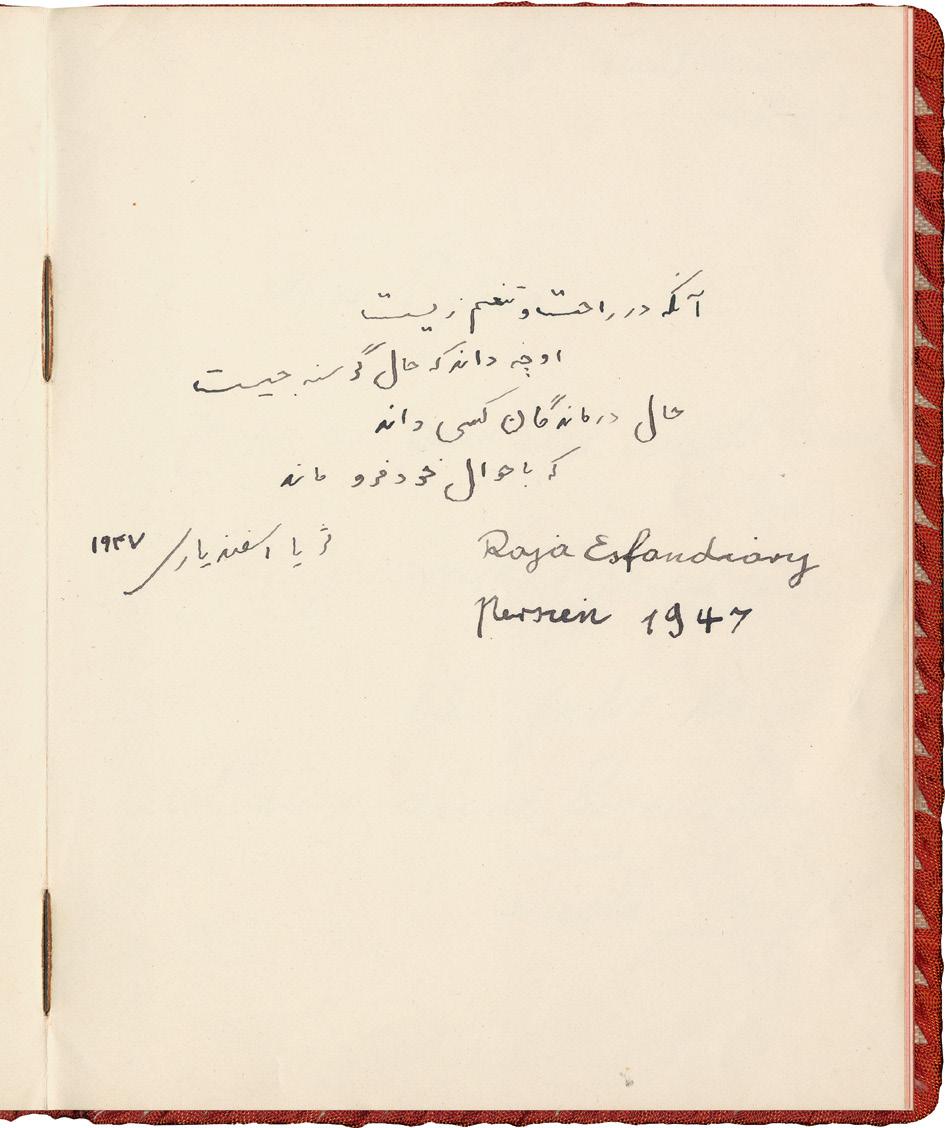 آنکه در راحت و تنعم زیست
او چه داند که حال گرسنه چیست
حال درماندگان کسی داند
که باحوال خود فرو ماند
Raja Esfandiary
ثریا اسفندیاری ۱۹۴۷
Persien 1947